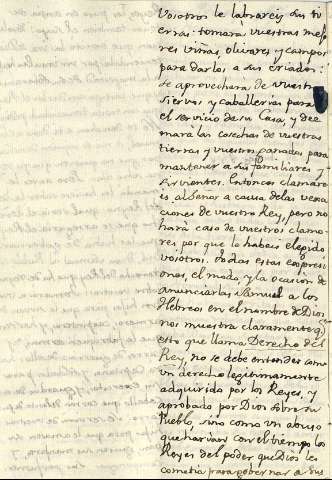 vosotros le labrareis sus ti
erras: tomara vuestras mejo
res viñas, olivares y campos
para darlos a sus criados:
se aprovechara de vuestros
siervos y caballerias para
el servicio de su Casa, y diez
mara las cosechas de vuestras
tierras y vuestros ganados para
mantener a sus familiares y
sirvientes. Entonces clamare
is al Señor a causa de las vexa
ciones de vuestro Rey, pero no
hará caso de vuestros clamo
res, por que le habeis elegido
vosotros. Todas estas expresi
ones, el modo, y la ocasion de
anunciarlas Samuel a los
Hebreos en el nombre de Dios
nos muestra claramente q.
esto que llama Derecho del
Rey, no se debe entender como
un derecho legitimamente
adquirido por los Reyes, y
aprobado por Dios sobre su
Pueblo, sino como un abuso
que harian con el tiempo los
Reyes del poder que Dios les
cometia para gobernar a sus